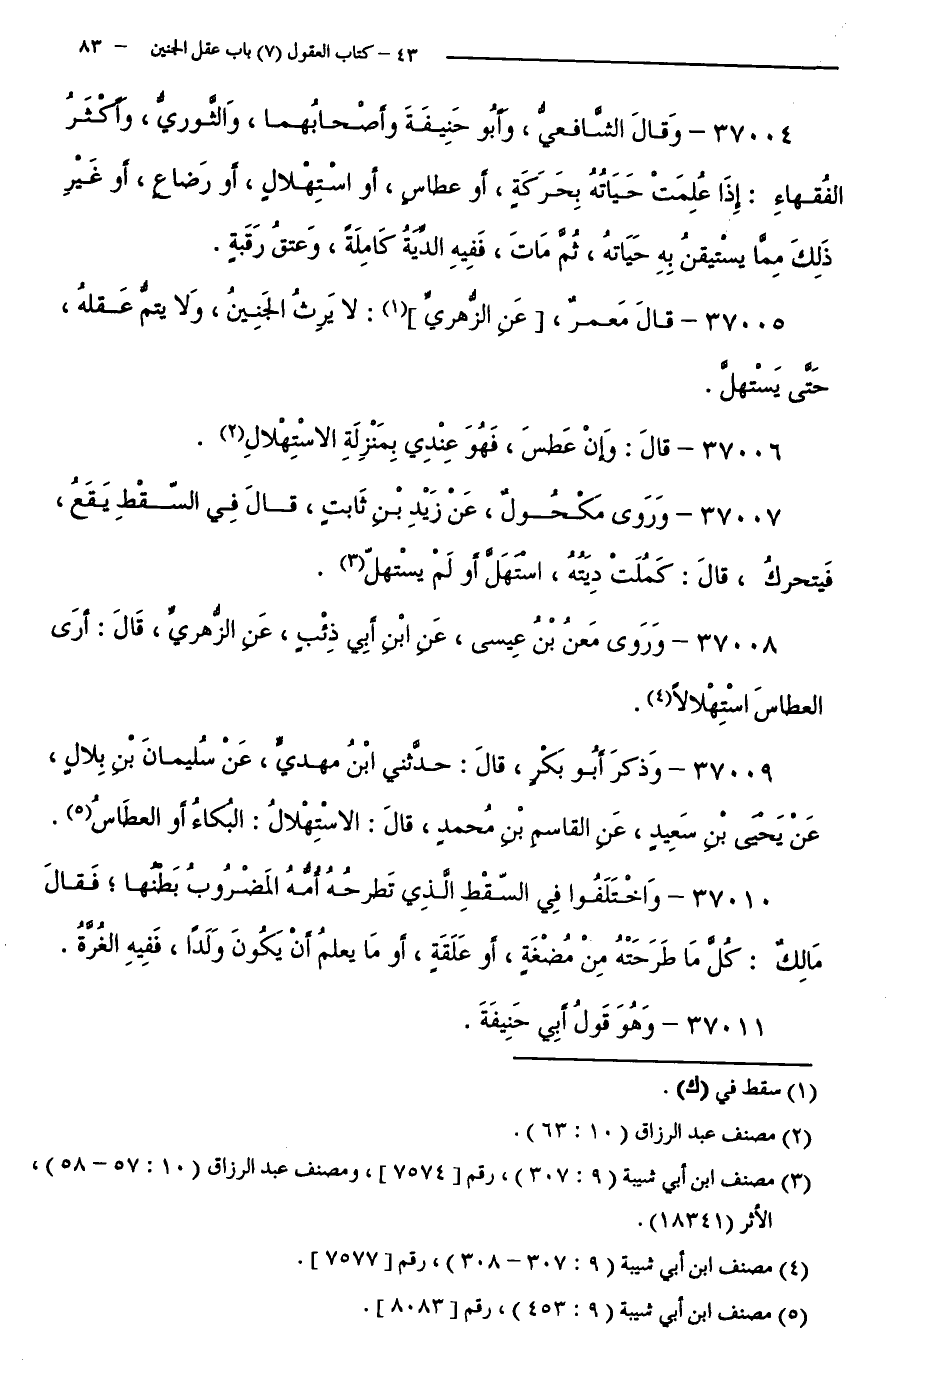 ٤٣ – كتاب العقول (٧) باب عقل الجنين – ٨٣
٣٧٠٠٤ – وَقَالَ الشَّافعيُّ ، وَأَبُو حَنِيفَةَ وأَصْحابُهما ، وَالثَّوريُّ ، وأَكْثَرُ
الفُقهاءِ : إِذَا عُلِمَتْ حَيَاتُهُ بِحَرَكَةٍ ، أو عطاسٍ ، أو اسْتِهْلالٍ ، أو رَضاعٍ ، أو غَيْرِ
ذَلِكَ مِمَّا يستيقنُ بِهِ حَيَاتهُ ، ثُمَّ مَاتَ ، فَفِيهِ الدِّيَةُ كَامِلَةً ، وَعتقُ رَقَبةٍ .
٣٧٠٠٥ – قالَ مَعمرٌ ، [ عَنِ الزُّهريِّ ](١) : لا يَرِثُ الجَنِينُ ، وَلا يتمُّ عَقلهُ ،
حَتَّى يَسْتهلَّ .
٣٧٠٠٦ – قالَ : وَإِنْ عَطسَ ، فَهُوَ عِنْدِي بِمَنْزِلَةِ الاسْتِهْلالِ(٢) .
٣٧٠٠٧ – وَرَوَى مَكْحُولٌ ، عَنْ زَيْدِ بْنِ ثَابتٍ ، قالَ فِي السّقْطِ يَقَعُ ،
فَيتحركُ ، قالَ : كَمُلَتْ دِيَتُهُ ، اسْتَهَلَّ أو لَمْ يستْهلّ(٣) .
٣٧٠٠٨ – وَرَوَى مَعنُ بْنُ عِيسى ، عَنِ ابْنِ أَبِي ذِئْبٍ ، عَنِ الزُّهريِّ ، قَالَ : أرَى
العطاسَ اسْتِهْلالاً(٤) .
٣٧٠٠٩ – وَذكرَ أَبُو بَكْرٍ ، قالَ : حدَّثني ابْنُ مهديٍّ ، عَنْ سُليمانَ بْنِ بِلالٍ ،
عَنْ يَحْيَى بْنِ سَعِيدٍ ، عَنِ القاسمِ بْنِ مُحمدٍ ، قالَ : الاسْتِهْلالُ : البُكَاءُ أو العطَاسُ(٥) .
٣٧٠١٠ – وَاخْتَلَفُوا فِي السّقْطِ الَّذِي تَطرحُهُ أُمُّهُ المَضْرُوبُ بَطْنُها ؛ فَقالَ
مَالِكٌ : كُلُّ مَا طَرَحَتْهُ مِنْ مُضْغَةٍ ، أو عَلَقَةٍ ، أو مَا يعلمُ أَنْ يَكُونَ وَلَدًا ، فَفِيهِ الغُرَّةُ .
٣٧٠١١ – وَهُوَ قَولُ أَبِي حَنِيفَةَ .
(١) سقط في (ك) .
(٢) مصنف عبد الرزاق ( ١٠ : ٦٣ ) .
(٣) مصنف ابن أبي شيبة ( ٩ : ٣٠٧ ) ، رقم [ ٧٥٧٤ ] ، ومصنف عبد الرزاق ( ١٠ : ٥٧ – ٥٨ ) ،
الأثر (١٨٣٤١) .
(٤) مصنف ابن أبي شيبة ( ٩ : ٣٠٧ – ٣٠٨ ) ، رقم [ ٧٥٧٧ ] .
(٥) مصنف ابن أبي شيبة ( ٩ : ٤٥٣ ) ، رقم [ ٨٠٨٣ ] .